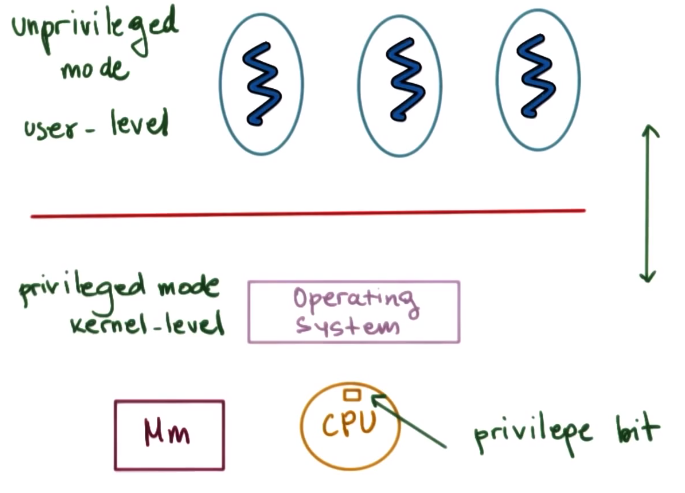 unprivileged
mode
user-level
privileged mode
kernel-level
Operating
System
Mm
CPU
privilepe bit